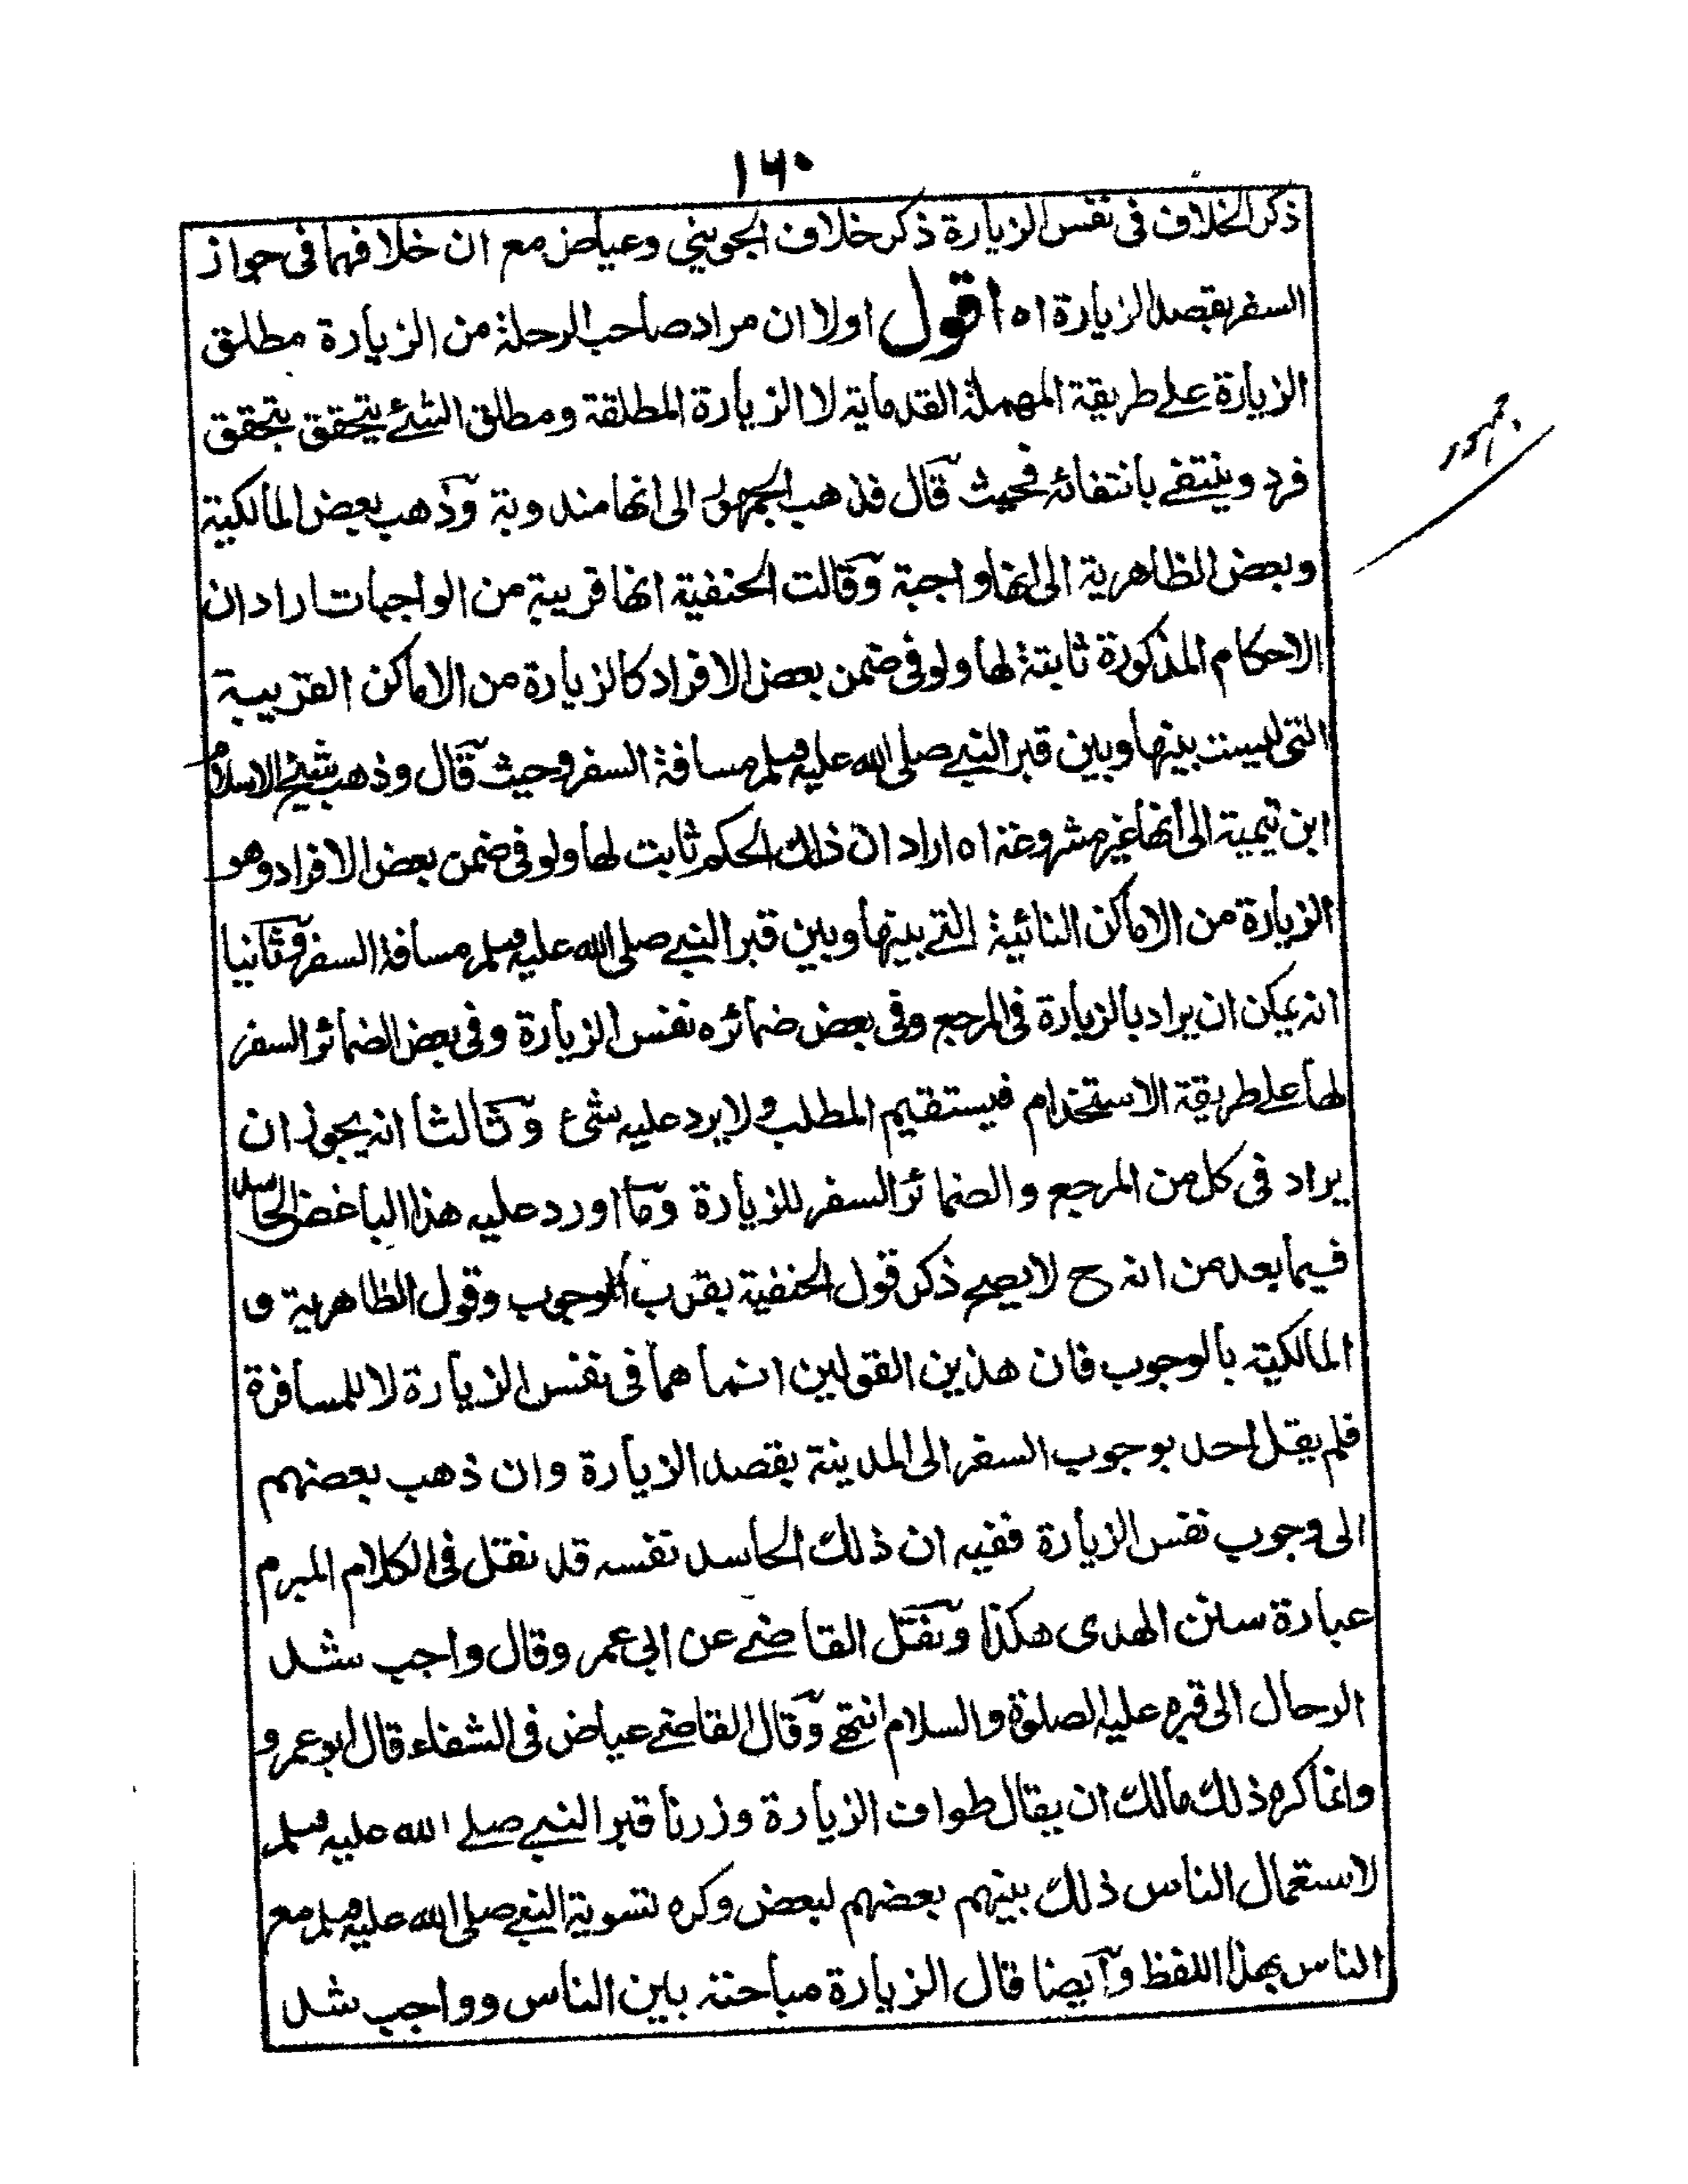 ١٦٠
ذكر الخلاف فى نفس الزيارة ذكر خلاف الجوينى وعياض مع ان خلافهما فى جواز
السفر بقصد الزيارة اه اقول اولا ان مراد صاحب الرحلة من الزيارة مطلق
الزيارة على طريقة المهملة القدمائية لا الزيارة المطلقة ومطلق الشئ يتحقق بتحقق
فرد وينتفى بانتفائه فحيث قال فذهب الجمهور الى انها مندوبة وذهب بعض المالكية
جمهور
وبعض الظاهرية الى انها واجبة وقالت الحنفية انها قريبة من الواجبات اراد ان
الاحكام المذكورة ثابتة لها ولو فى ضمن بعض الافراد كالزيارة من الاماكن القريبة
التى ليست بينها وبين قبر النبى صلى الله عليه وسلم مسافة السفر وحيث قال وذهب شيخ الاسلام
ابن تيمية الى انها غير مشروعة اه اراد ان ذلك الحكم ثابت لها ولو فى ضمن بعض الافراد وهو
الزيارة من الاماكن النائية التى بينها وبين قبر النبى صلى الله عليه وسلم مسافة السفر وثانيا
انه يمكن ان يراد بالزيارة فى المرجع وفى بعض ضمائره نفس الزيارة وفى بعض الضمائر السفر
لها على طريقة الاستخدام فيستقيم المطلب ولا يرد عليه شئ وثالثا انه يجوز ان
يراد فى كل من المرجع والضمائر السفر للزيارة وما اورد عليه هذا الباغض الحاسد
فيما بعد من انه ح لا يصح ذكر قول الحنفية بقرب الوجوب وقول الظاهرية و
المالكية بالوجوب فان هذين القولين انما هما فى نفس الزيارة لا للمسافرة
فلم يقل احد بوجوب السفر الى المدينة بقصد الزيارة وان ذهب بعضهم
الى وجوب نفس الزيارة ففيه ان ذلك الحاسد نفسه قد نقل فى الكلام المبرم
عبارة سنن الهدى هكذا ونقل القاضى عن ابى عمر وقال واجب شد
الرحال الى قبره عليه الصلوة والسلام انتهى وقال القاضى عياض فى الشفاء قال ابو عمرو
وانما كره ذلك مالك ان يقال طواف الزيارة وزرنا قبر النبى صلى الله عليه وسلم
لاستعمال الناس ذلك بينهم بعضهم لبعض وكره تسوية النبى صلى الله عليه وسلم مع
الناس بهذا اللفظ وايضا قال الزيارة مباحتة بين الناس وواجب شد